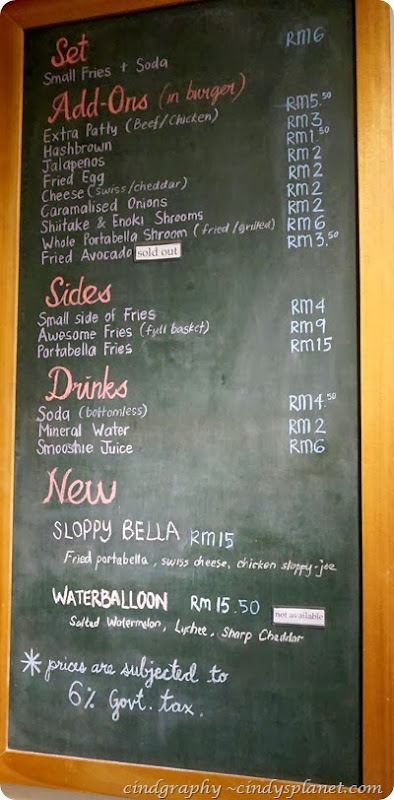 Set
Small Fries + Soda RM6
Add-Ons (in burger)
Extra Patty (Beef/Chicken) RM5.50
Hashbrown RM3
Jalapenos RM1.50
Fried Egg RM2
Cheese (swiss/cheddar) RM2
Caramalised Onions RM2
Shiitake & Enoki Shrooms RM2
Whole Portabella Shroom (fried/grilled) RM6
Fried Avocado sold out RM3.50
Sides
Small side of Fries RM4
Awesome Fries (full basket) RM9
Portabella Fries RM15
Drinks
Soda (bottomless) RM4.50
Mineral Water RM2
Smooshie Juice RM6
New
SLOPPY BELLA RM15
Fried portabella, swiss cheese, chicken sloppy-joe
WATERBALLOON RM15.50 not available
Salted Watermelon, Lychee, Sharp Cheddar
* prices are subjected to
6% Govt. tax.
cindgraphy ~cindysplanet.com